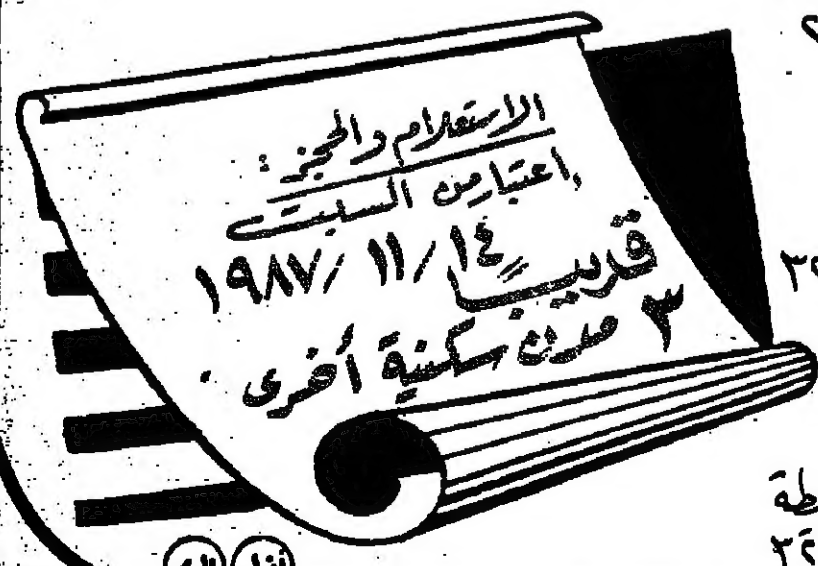 الاستعلام والحجز :
اعتبارمن السبت
١٩٨٧/١١/١٤
قريباً
٣ مدن سكنية أخرى .